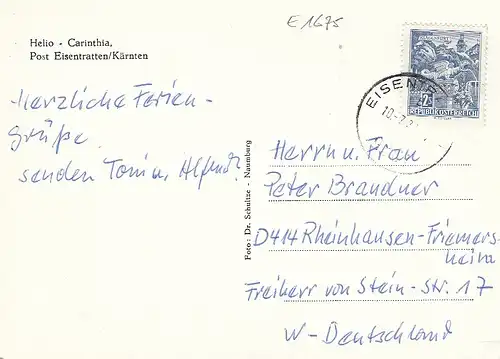 E1675
Helio - Carinthia,
Post Eisentratten/Kärnten
Herzliche Ferien-
grüße
senden Toni u. Alfred
REPUBLIK ÖSTERREICH
EISEN
Foto: Dr. Schultze - Naumburg
Herrn u. Frau
Peter Brandner
D414 Rheinhausen-Friemers-
heim
Freiherr von Stein-Str. 17
W-Deutschland